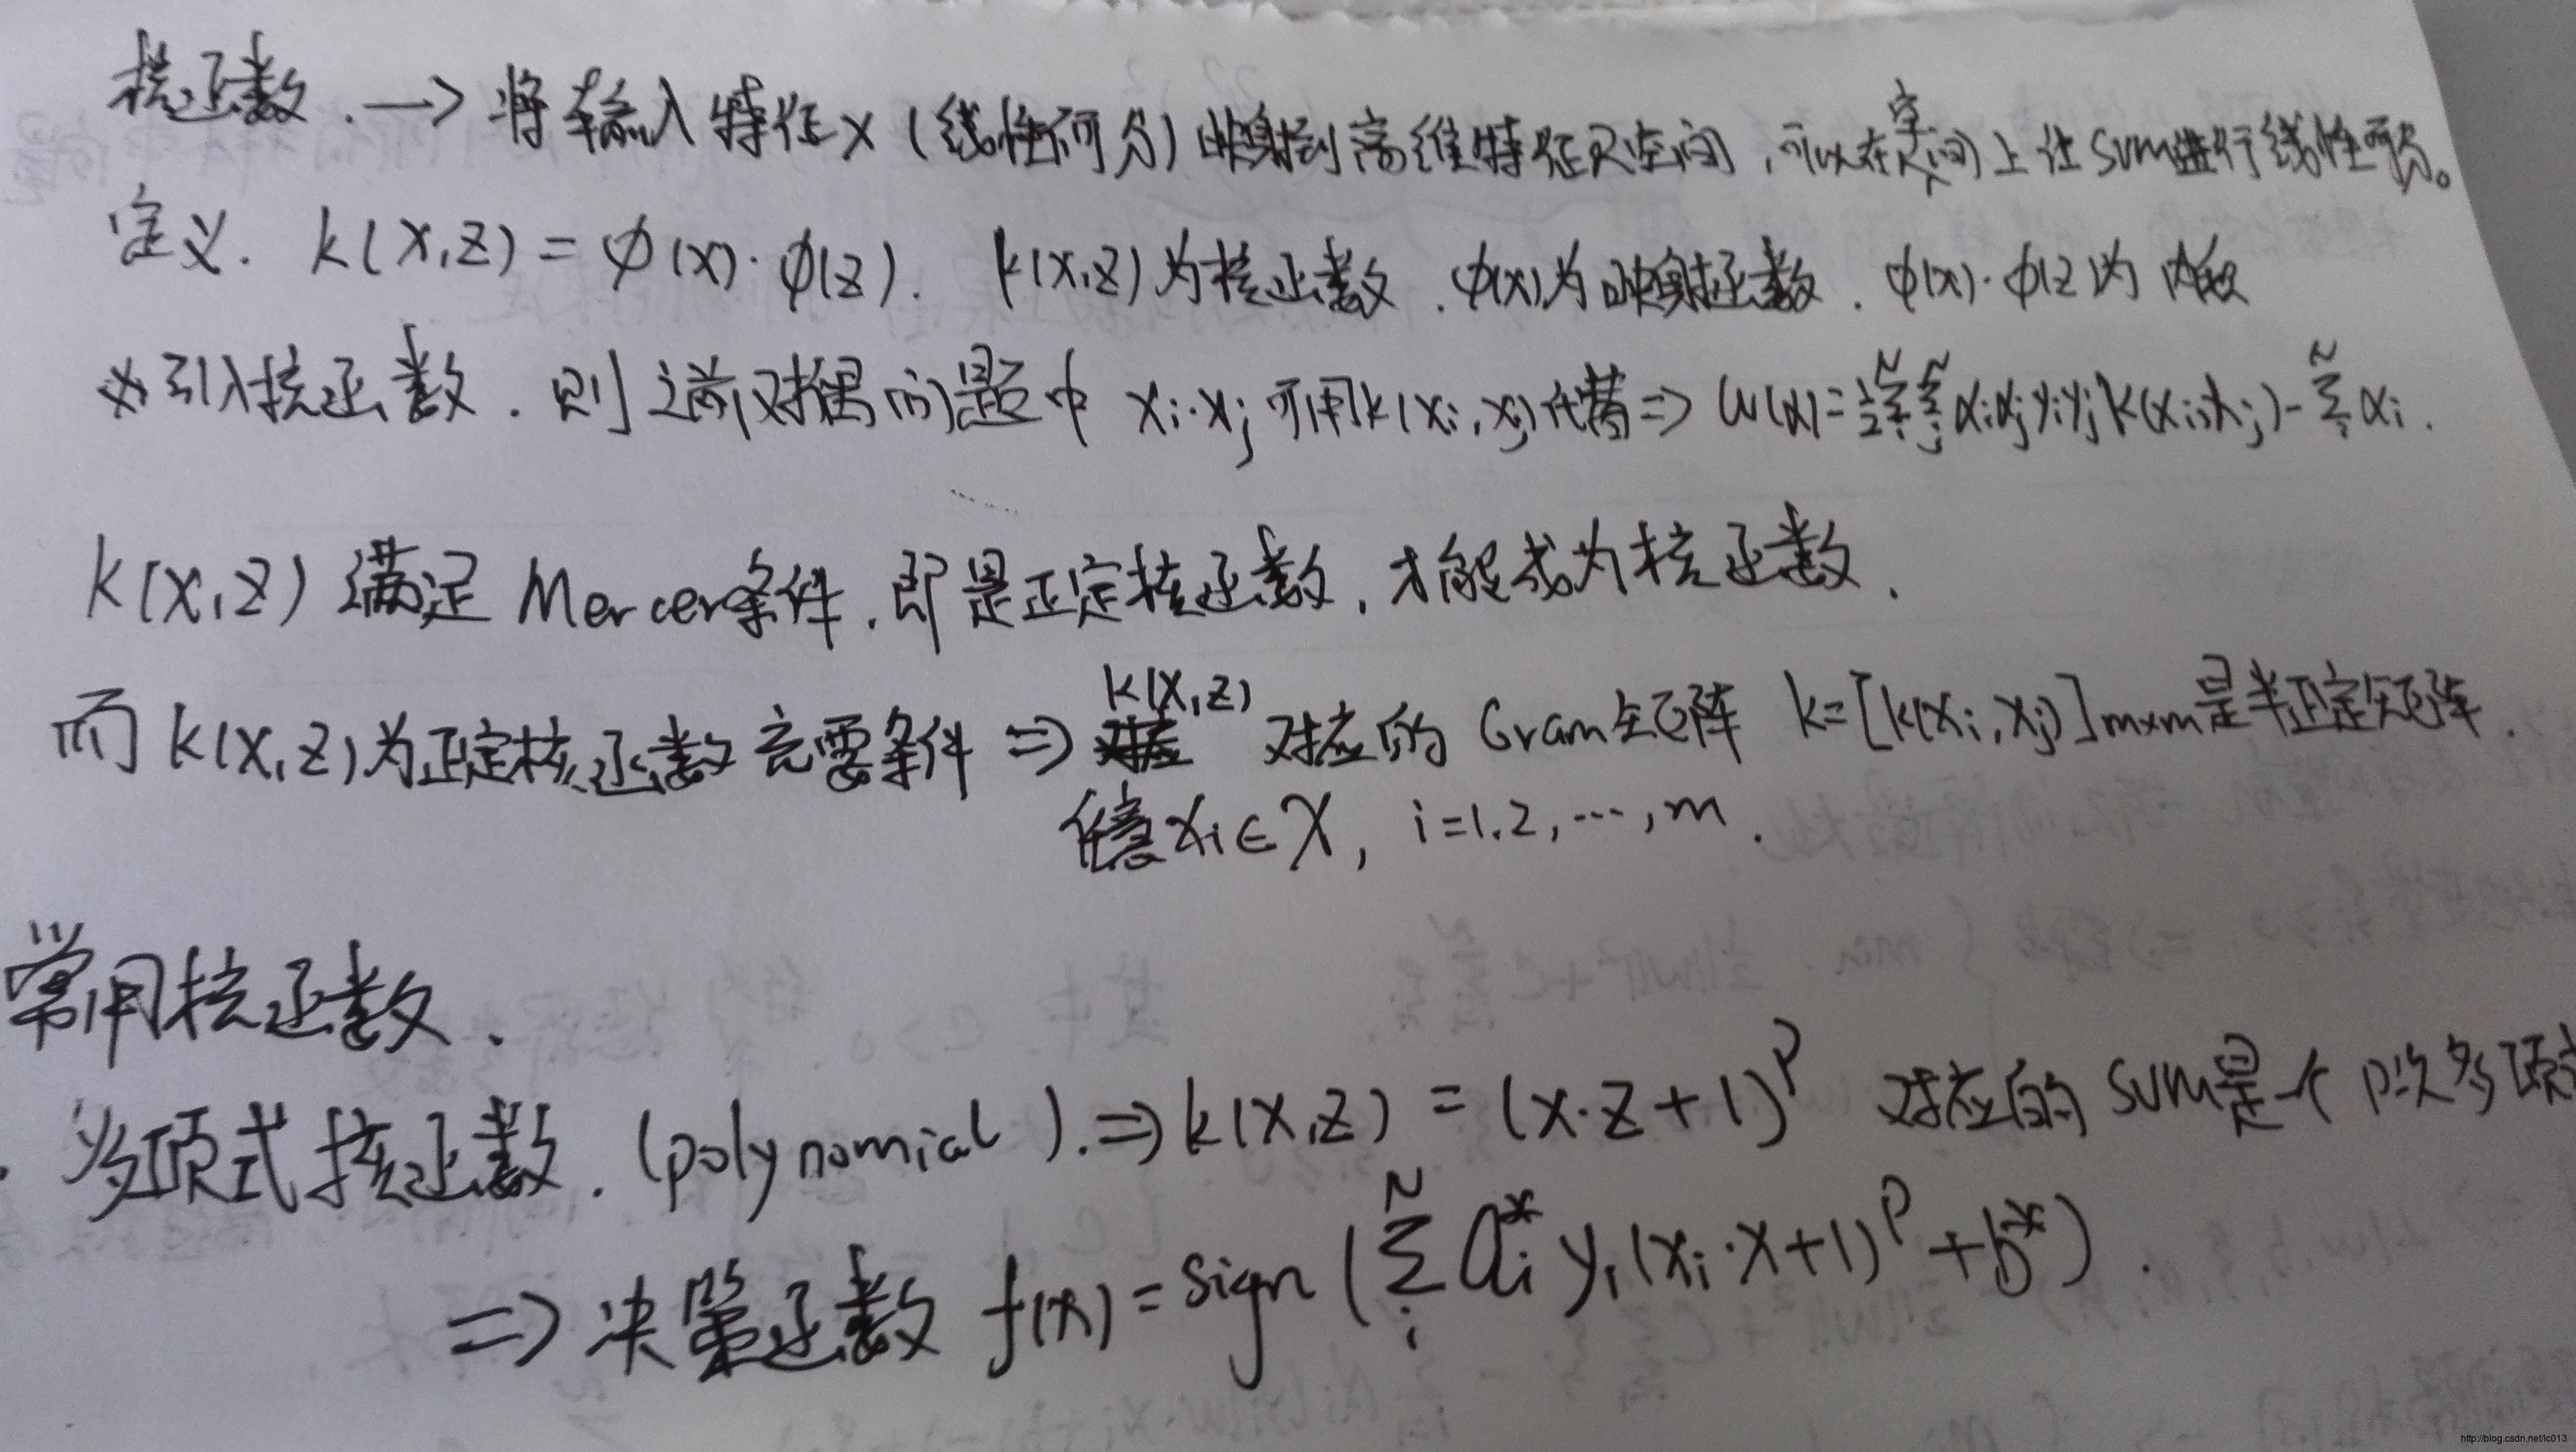 核函数. → 将输入特征x(线性可分)映射到高维特征R空间,可以在R空间上让SVM进行线性可分。
定义. K(x,z) = φ(x)·φ(z). K(x,z)为核函数.φ(x)为映射函数.φ(x)·φ(z)为内积
※引入核函数.则之前对偶问题中 xi·xj 可用K(xi,xj)代替⇒ W(α)=½∑ᵢᴺ∑ⱼᴺαiαjyiyjK(xi,xj)-∑ᵢᴺαi.
K(x,z)满足Mercer条件.即是正定核函数,才能成为核函数.
而K(x,z)为正定核函数充要条件 ⇒ K(x,z) 对应的Gram矩阵 K=[K(xi,xj)]m×m是半正定矩阵.
任意xi∈X, i=1.2,…,m.
常用核函数.
. 多项式核函数.(polynomial).⇒K(x,z) = (x·z+1)ᵖ 对应的SVM是一个p次多项
⇒ 决策函数 f(x)=sign(∑ᵢᴺ ai* yi(xi·x+1)ᵖ+b*).
http://blog.csdn.net/lc013